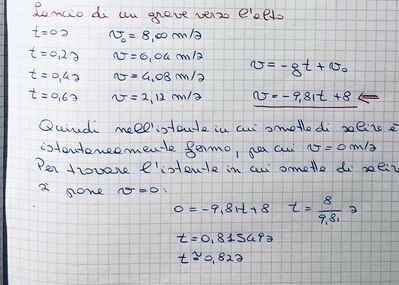 Lancio di un grave verso l'alto
t=0s v₀ = 8,00 m/s
t=0,2s v = 6,04 m/s
t=0,4s v = 4,08 m/s v = -gt + v₀
t=0,6s v = 2,12 m/s v = -9,81t + 8 ⇐
Quindi nell'istante in cui smette di salire è
istantaneamente fermo, per cui v = 0 m/s
Per trovare l'istante in cui smette di salire
si pone v=0:
0 = -9,81t + 8 t = 8/9,81 s
t = 0,81549s
t ≅ 0,82s